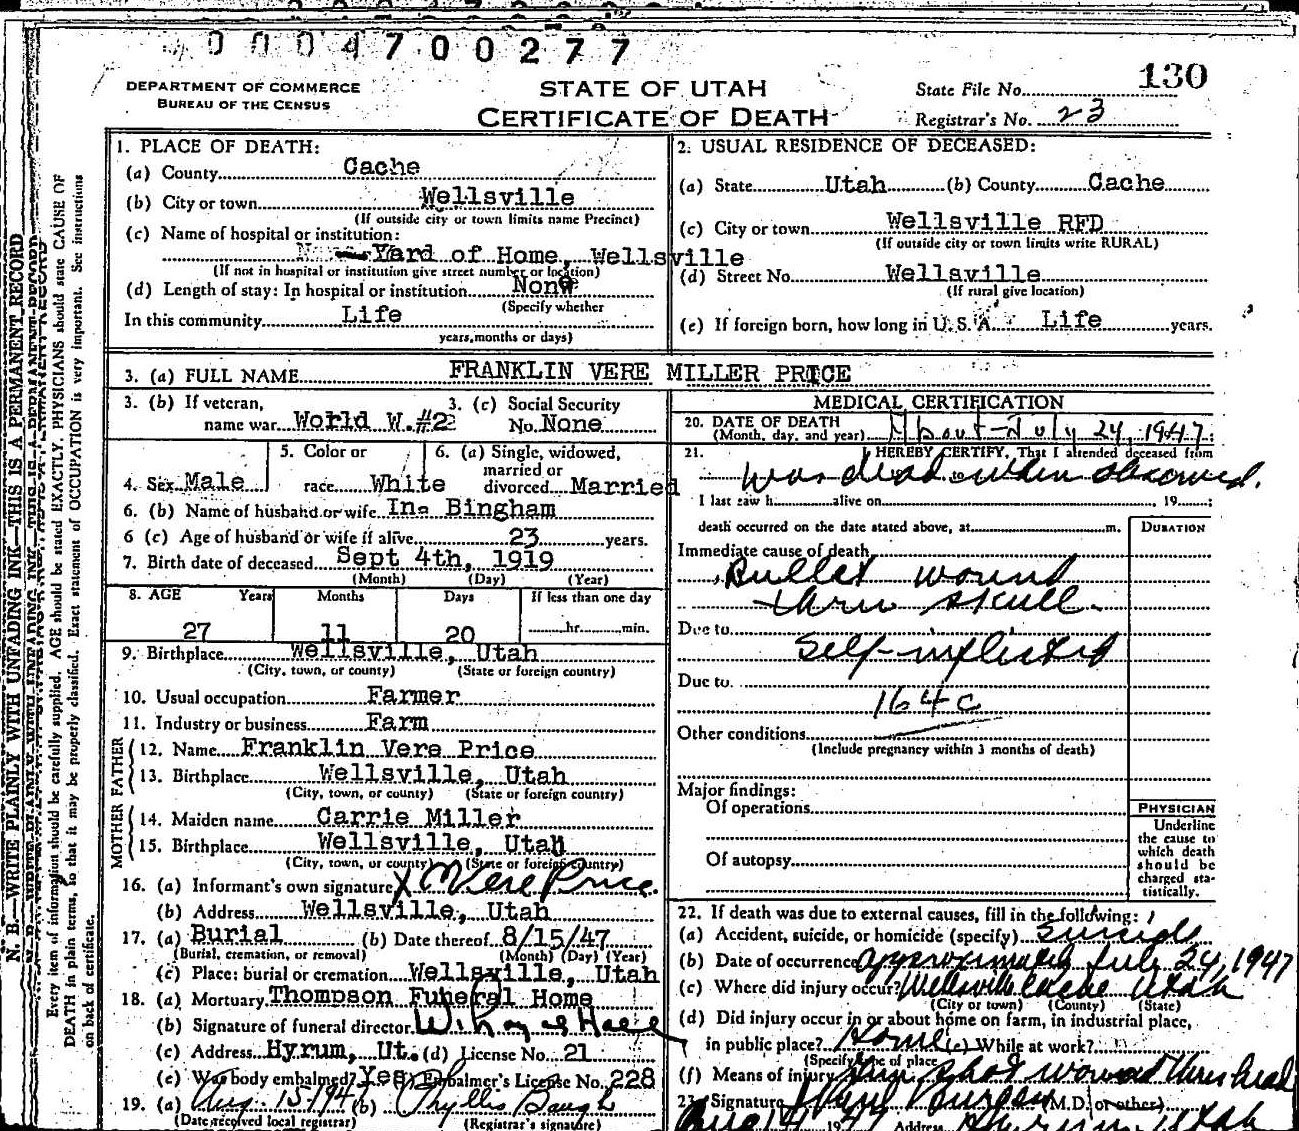 0004700277
130
DEPARTMENT OF COMMERCE
BUREAU OF THE CENSUS
STATE OF UTAH
CERTIFICATE OF DEATH
State File No.
Registrar's No. 23
N. B.—WRITE PLAINLY WITH UNFADING INK—THIS IS A PERMANENT RECORD
Every item of information should be carefully supplied. AGE should be stated EXACTLY. PHYSICIANS should state CAUSE OF
DEATH in plain terms, so that it may be properly classified. Exact statement of OCCUPATION is very important. See instructions
on back of certificate.
1. PLACE OF DEATH:
(a) County Cache
(b) City or town Wellsville
(If outside city or town limits name Precinct)
(c) Name of hospital or institution:
Yard of Home, Wellsville
(If not in hospital or institution give street number or location)
(d) Length of stay: In hospital or institution None
(Specify whether
In this community Life
years, months or days)
2. USUAL RESIDENCE OF DECEASED:
(a) State Utah (b) County Cache
(c) City or town Wellsville RFD
(If outside city or town limits write RURAL)
(d) Street No. Wellsville
(If rural give location)
(e) If foreign born, how long in U. S. A. Life years.
3. (a) FULL NAME FRANKLIN VERE MILLER PRICE
3. (b) If veteran, name war World W.#2
3. (c) Social Security No. None
4. Sex Male
5. Color or race White
6. (a) Single, widowed, married or divorced Married
6. (b) Name of husband or wife Ina Bingham
6 (c) Age of husband or wife if alive 23 years.
7. Birth date of deceased Sept 4th, 1919
(Month) (Day) (Year)
8. AGE Years Months Days If less than one day
27 11 20 hr. min.
9. Birthplace Wellsville, Utah
(City, town, or county) (State or foreign country)
10. Usual occupation Farmer
11. Industry or business Farm
FATHER
12. Name Franklin Vere Price
13. Birthplace Wellsville, Utah
(City, town, or county) (State or foreign country)
MOTHER
14. Maiden name Carrie Miller
15. Birthplace Wellsville, Utah
(City, town, or county) (State or foreign country)
16. (a) Informant's own signature X Vere Price
(b) Address Wellsville, Utah
17. (a) Burial (b) Date thereof 8/15/47
(Burial, cremation, or removal) (Month) (Day) (Year)
(c) Place: burial or cremation Wellsville, Utah
18. (a) Mortuary Thompson Funeral Home
(b) Signature of funeral director Hall
(c) Address Hyrum, Ut. (d) License No. 21
(e) Was body embalmed? Yes Embalmer's License No. 228
19. (a) Aug. 15-1947 (b) Phyllis Baugh
(Date received local registrar) (Registrar's signature)
MEDICAL CERTIFICATION
20. DATE OF DEATH
(Month, day, and year) About - July 24, 1947
21. I HEREBY CERTIFY, That I attended deceased from
was dead to when observed.
I last saw h alive on , 19 ;
death occurred on the date stated above, at m.
DURATION
Immediate cause of death
Bullet wound
thru skull.
Due to
Self-inflicted
Due to
164c
Other conditions
(Include pregnancy within 3 months of death)
Major findings:
Of operations
Of autopsy
PHYSICIAN
Underline
the cause to
which death
should be
charged sta-
tistically.
22. If death was due to external causes, fill in the following:
(a) Accident, suicide, or homicide (specify) suicide
(b) Date of occurrence approximately July 24, 1947
(c) Where did injury occur? Wellsville Cache Utah
(City or town) (County) (State)
(d) Did injury occur in or about home on farm, in industrial place,
in public place? Home (e) While at work?
(Specify type of place
(f) Means of injury Gun shot wound thru head
23. Signature (M.D. or other)
Aug 14 1947 Address Utah